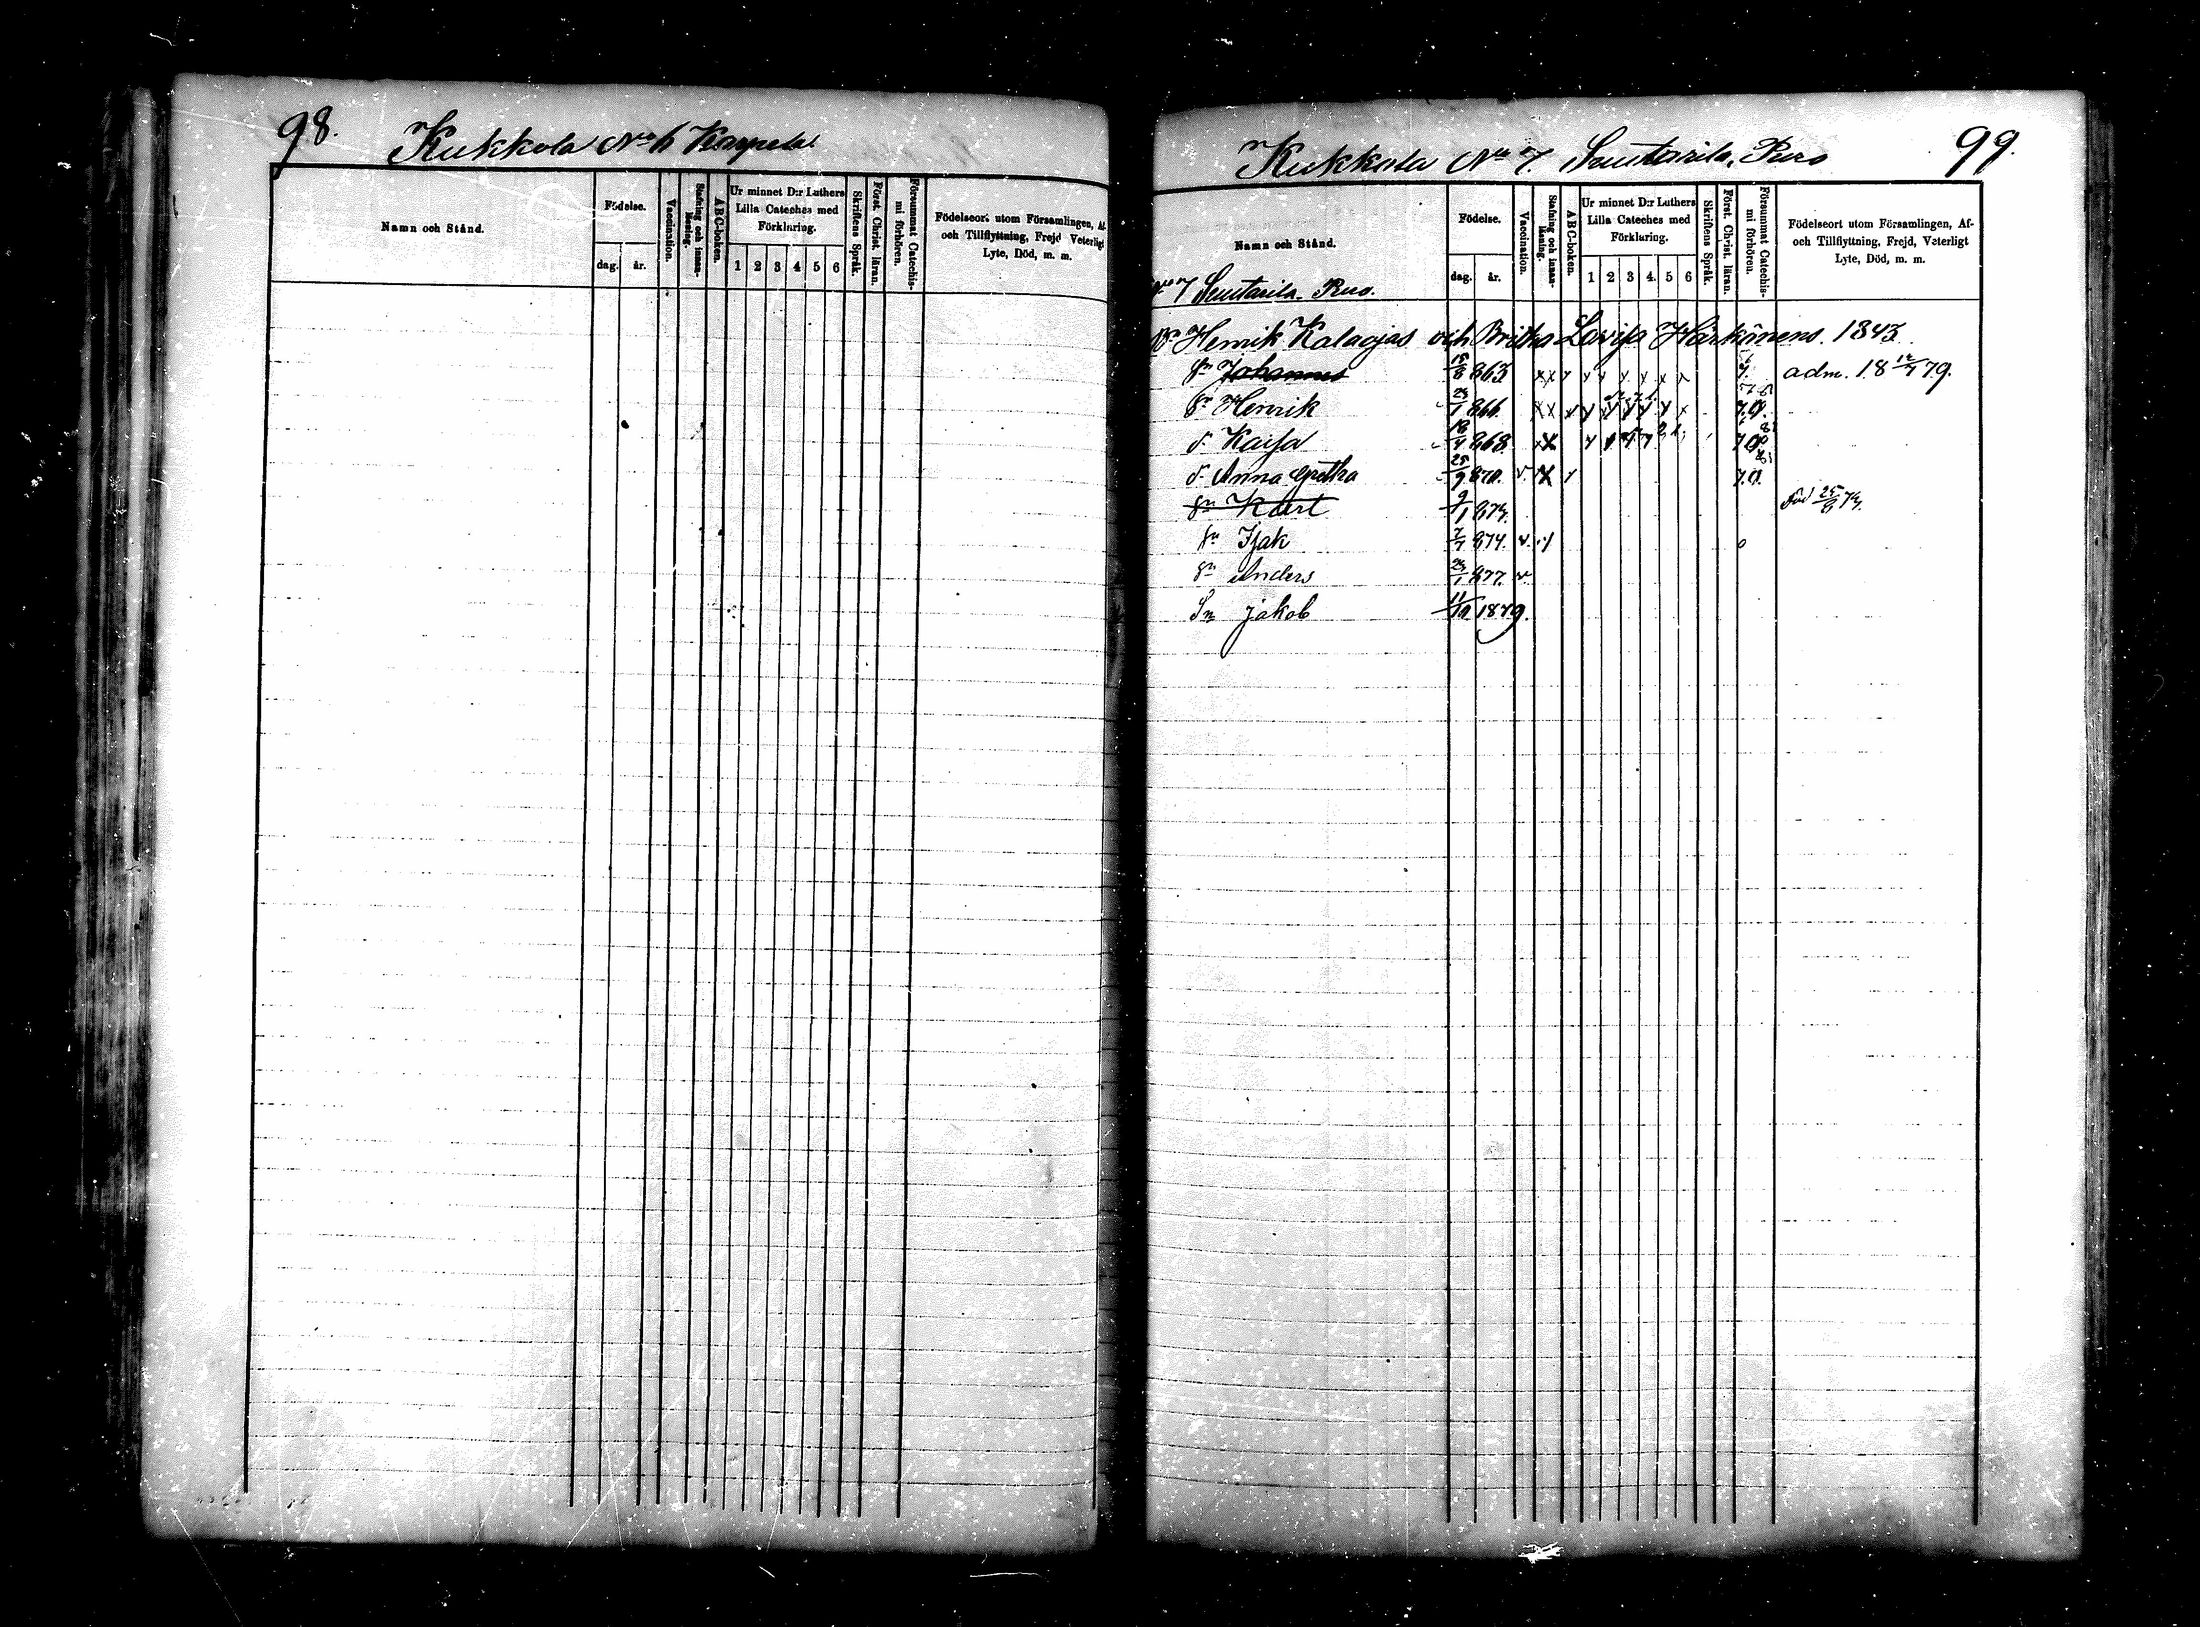 98. Kukkola No 6 Karpela
Namn och Stånd.
Födelse.
dag.
år.
Vaccination.
Stafning och innan-läsning.
ABC-boken.
Ur minnet D:r Luthers
Lilla Cateches med
Förklaring.
1 2 3 4 5 6
Skriftens Språk.
Först. Christ. läran.
Försummat Catechis-
mi förhören.
Födelseort utom Församlingen, Af-
och Tillflyttning, Frejd Veterligt
Lyte, Död, m. m.
Kukkola No 7. Puro 99.
Namn och Stånd.
Födelse.
dag.
år.
Vaccination.
Stafning och innan-läsning.
ABC-boken.
Ur minnet D:r Luthers
Lilla Cateches med
Förklaring.
1 2 3 4 5 6
Skriftens Språk.
Först. Christ. läran.
Försummat Catechis-
mi förhören.
Födelseort utom Församlingen, Af-
och Tillflyttning, Frejd, Veterligt
Lyte, Död, m. m.
No 7 Puro.
Bn Henrik Kalaojas och Britha Lovisa Härkönens. 1843
Sn Johannes 18/8 863 adm. 18 12/7 79.
Sn Henrik 23/1 866
d. Kajsa 18/4 868
d. Anna Gretha 25/9 870.
Sn Karl 9/1 873. död 25/6 73.
Sn Isak 7/7 874.
Sn Anders 23/1 877.
Sn Jakob 11/10 1879.